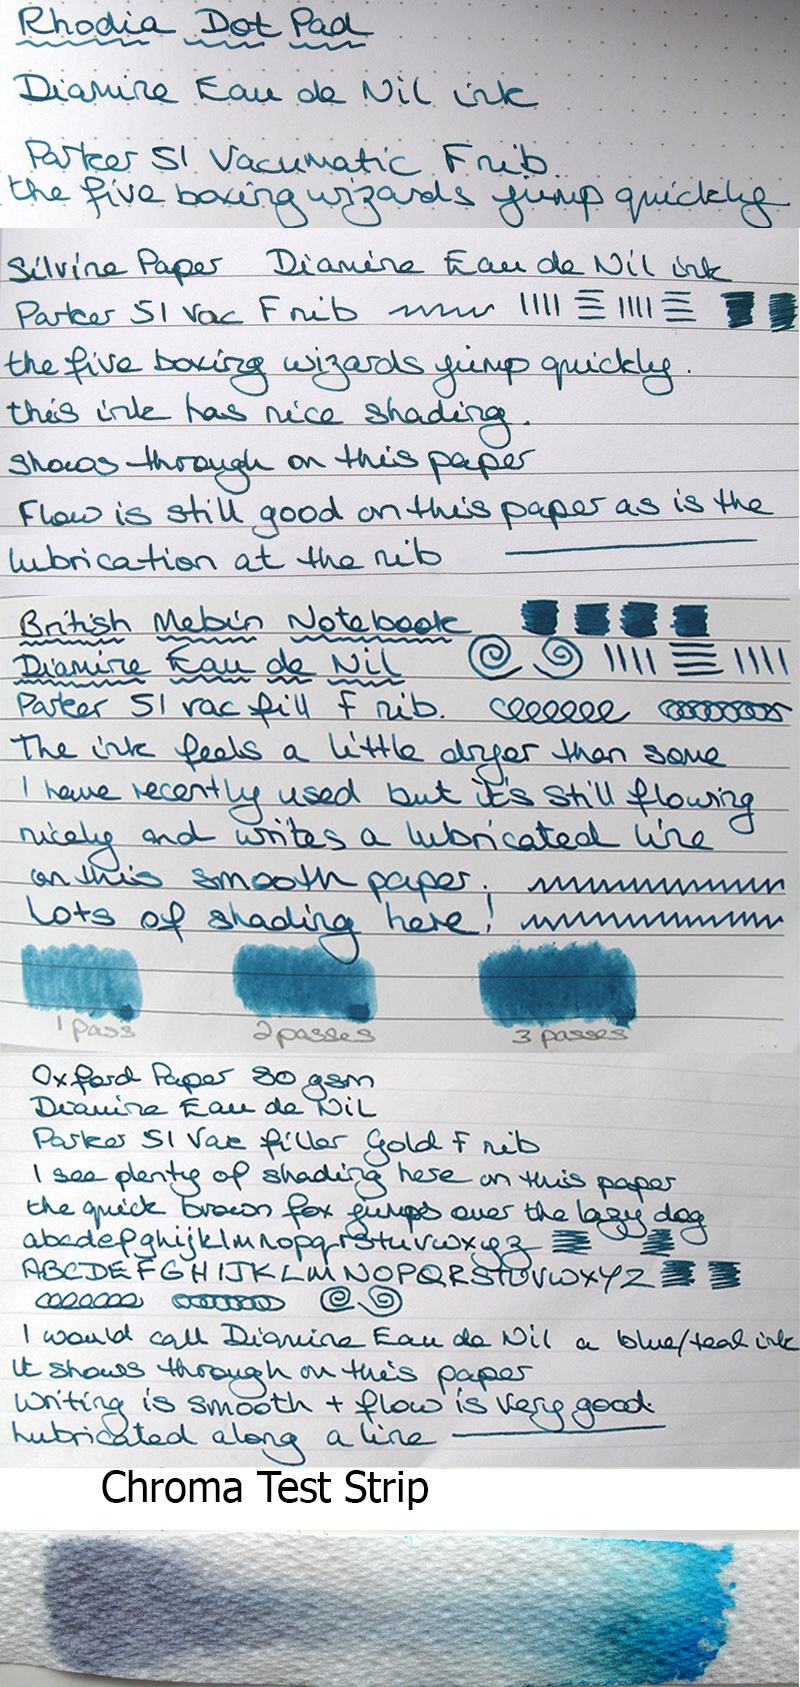 Rhodia Dot Pad
Diamine Eau de Nil ink
Parker 51 Vacumatic F nib.
the five boxing wizards jump quickly
Silvine Paper Diamine Eau de Nil ink
Parker 51 Vac F nib
the five boxing wizards jump quickly.
this ink has nice shading.
shows through on this paper
Flow is still good on this paper as is the
lubrication at the nib
British Mebin Notebook
Diamine Eau de Nil
Parker 51 vac fill F nib.
The ink feels a little dryer than some
I have recently used but it's still flowing
nicely and writes a lubricated line
on this smooth paper.
Lots of shading here!
1 pass 2 passes 3 passes
Oxford Paper 80 gsm
Diamine Eau de Nil
Parker 51 Vac filler Gold F nib
I see plenty of shading here on this paper
the quick brown fox jumps over the lazy dog
abcdefghijklmnopqrstuvwxyz
ABCDEFGHIJKLMNOPQRSTUVWXYZ
I would call Diamine Eau de Nil a blue/teal ink
It shows through on this paper
Writing is smooth + flow is very good.
Lubricated along a line
Chroma Test Strip